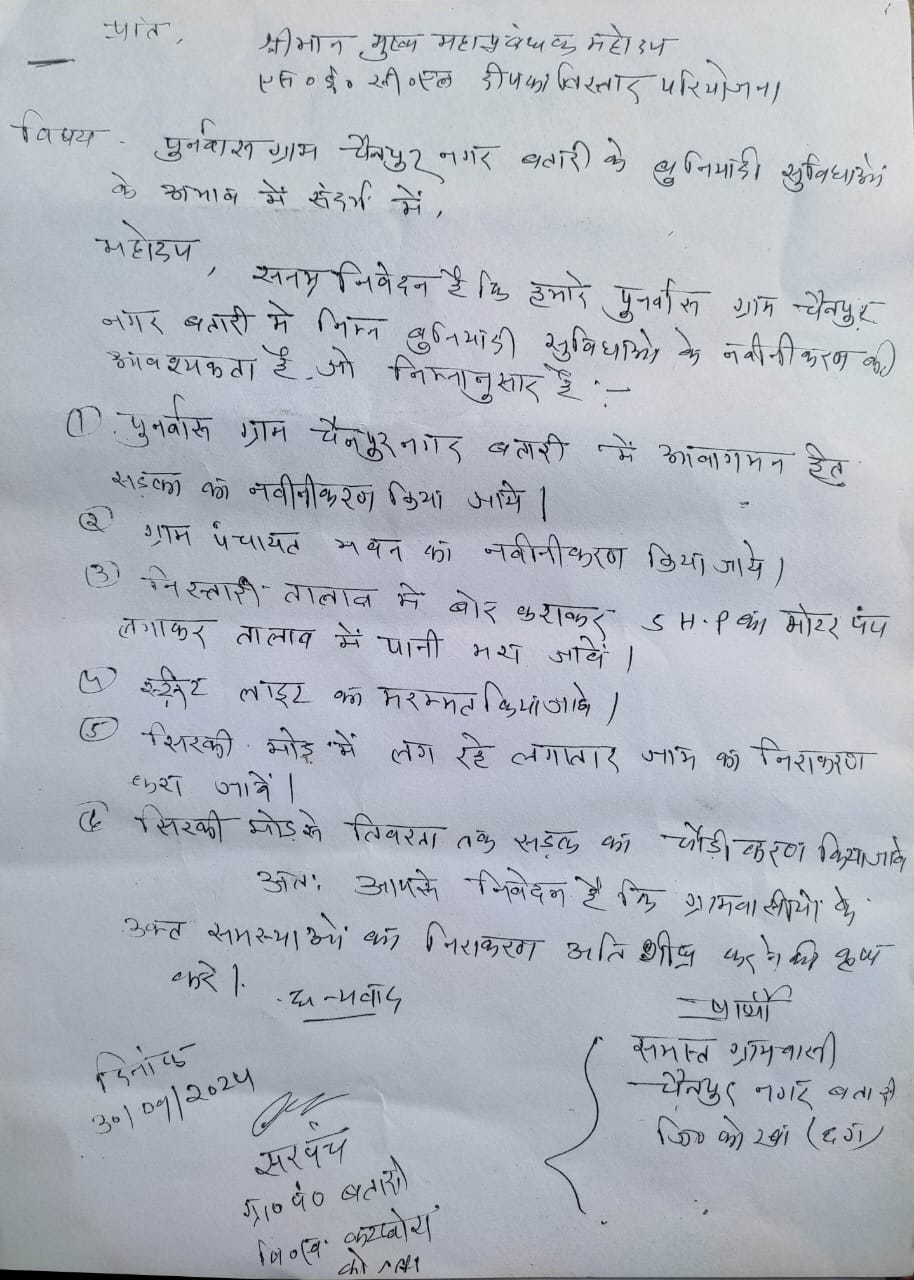 प्रति,
श्रीमान मुख्य महाप्रबंधक महोदय
एस०ई०सी०एल दीपका विस्तार परियोजना
विषय - पुर्नवास ग्राम चैनपुर नगर बतारी के बुनियादी सुविधाओं
के अभाव में संदर्भ में,
महोदय,
सनम्र निवेदन है कि हमारे पुनर्वास ग्राम चैनपुर
नगर बतारी मे निम्न बुनियादी सुविधाओं के नवीनीकरण की
आवश्यकता है जो निम्नानुसार है :-
① पुनर्वास ग्राम चैनपुर नगर बतारी में आवागमन हेतु
सड़को का नवीनीकरण किया जाये।
② ग्राम पंचायत भवन का नवीनीकरण किया जाये।
③ निस्तारी तालाब मे बोर कराकर 5 H.P का मोटर पंप
लगाकर तालाब में पानी भरा जावें।
④ स्ट्रीट लाइट का मरम्मत किया जावे।
⑤ सिरकी मोड़ में लग रहे लगातार जाम का निराकरण
करा जावें।
⑥ सिरकी मोड से तिवरता तक सड़क का चौड़ीकरण किया जावे
अतः आपसे निवेदन है कि ग्रामवासीयों के
उक्त समस्याओं का निराकरण अति शीघ्र करने की कृपा
करे।
धन्यवाद
प्रार्थी
समस्त ग्रामवासी
चैनपुर नगर बतारी
जि० कोरबा (छग)
दिनांक
30/09/2024
सरपंच
ग्रा० पं० बतारी
वि०ख० कटघोरा
कोरबा